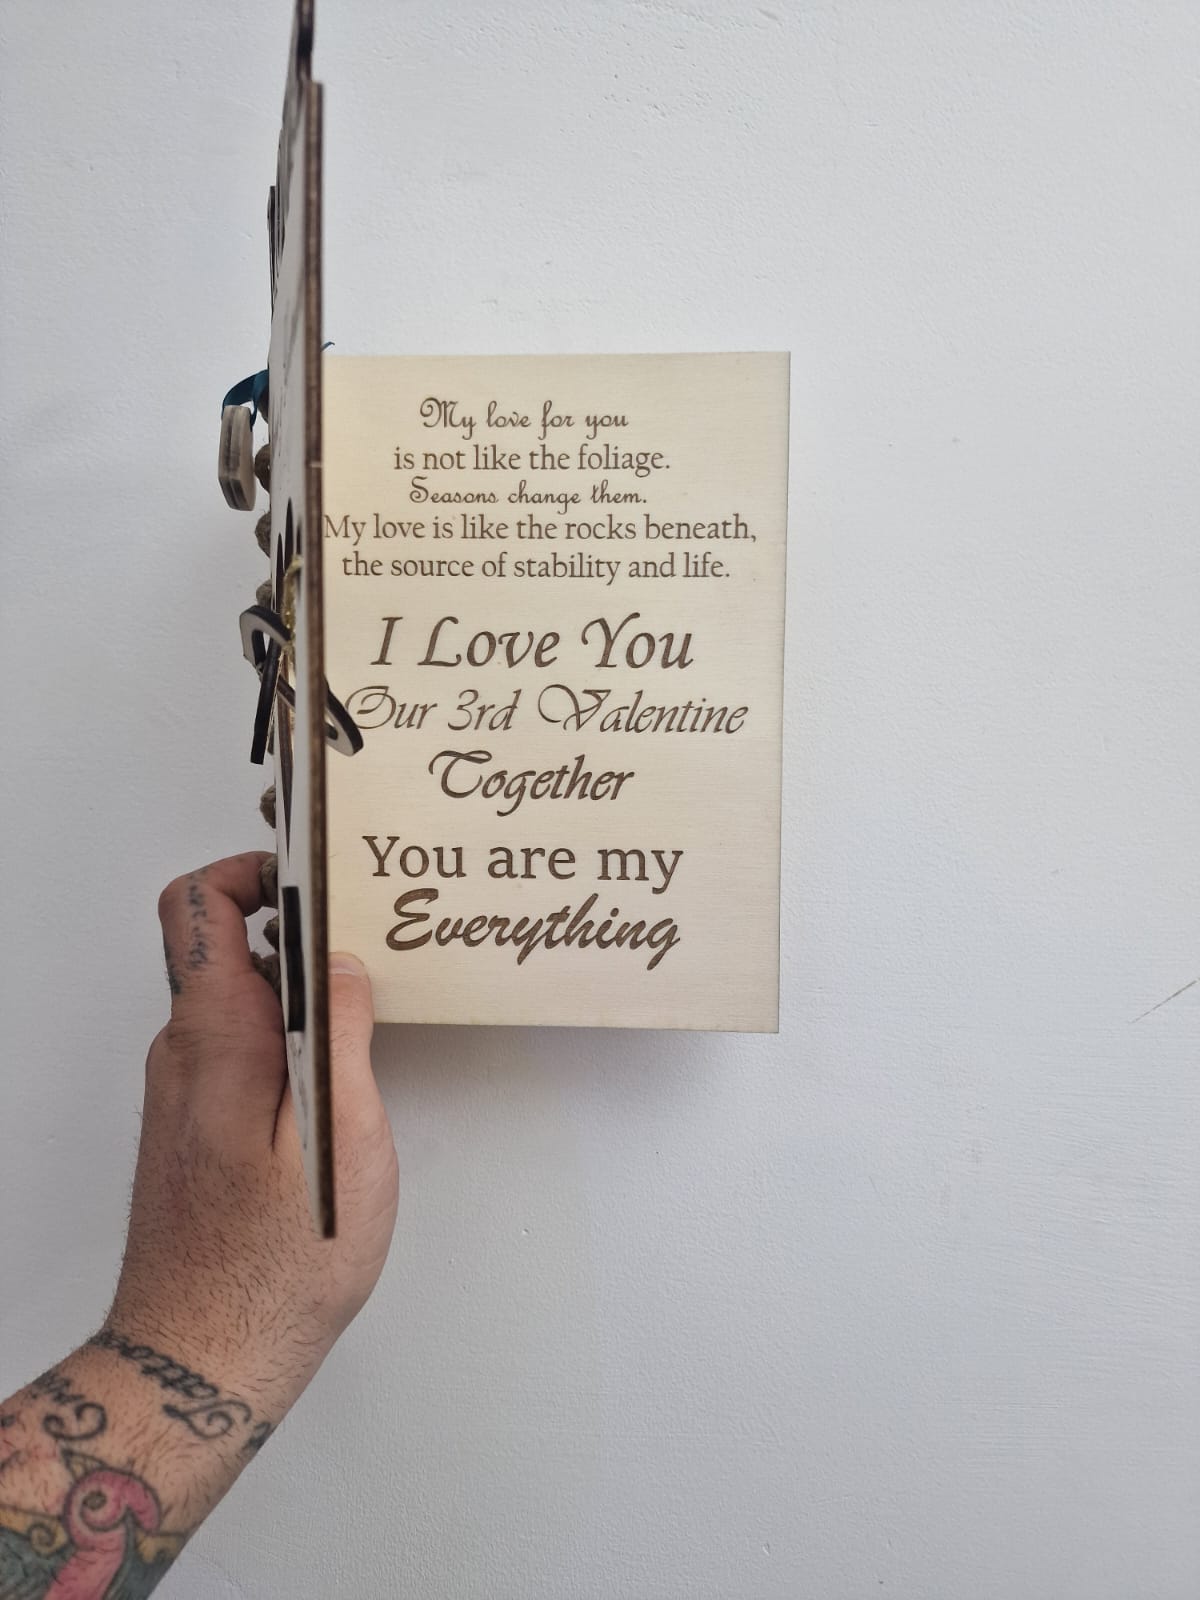 My love for you
is not like the foliage.
Seasons change them.
My love is like the rocks beneath,
the source of stability and life.
I Love You
Our 3rd Valentine
Together
You are my
Everything